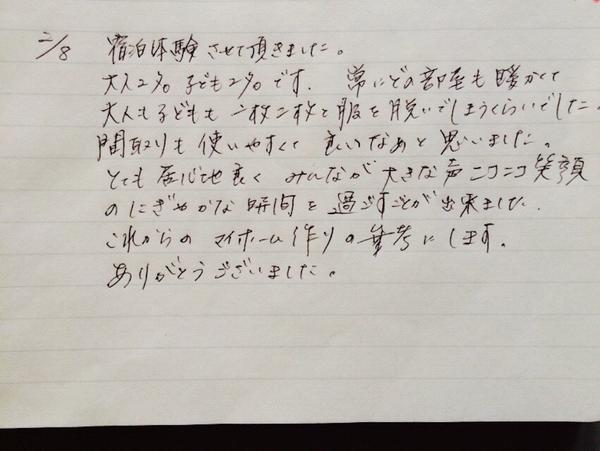 2/8 宿泊体験させて頂きました。
大人2名 子ども2名です. 常にどの部屋も暖かくて
大人も子どもも一枚二枚と服を脱いでしまうくらいでした。
間取りも使いやすくて良いなあと思いました。
とても居心地良く みんなが大きな声 ニコニコ笑顔
のにぎやかな時間を過ごすことが出来ました.
これからのマイホーム作りの参考にします.
ありがとうございました。